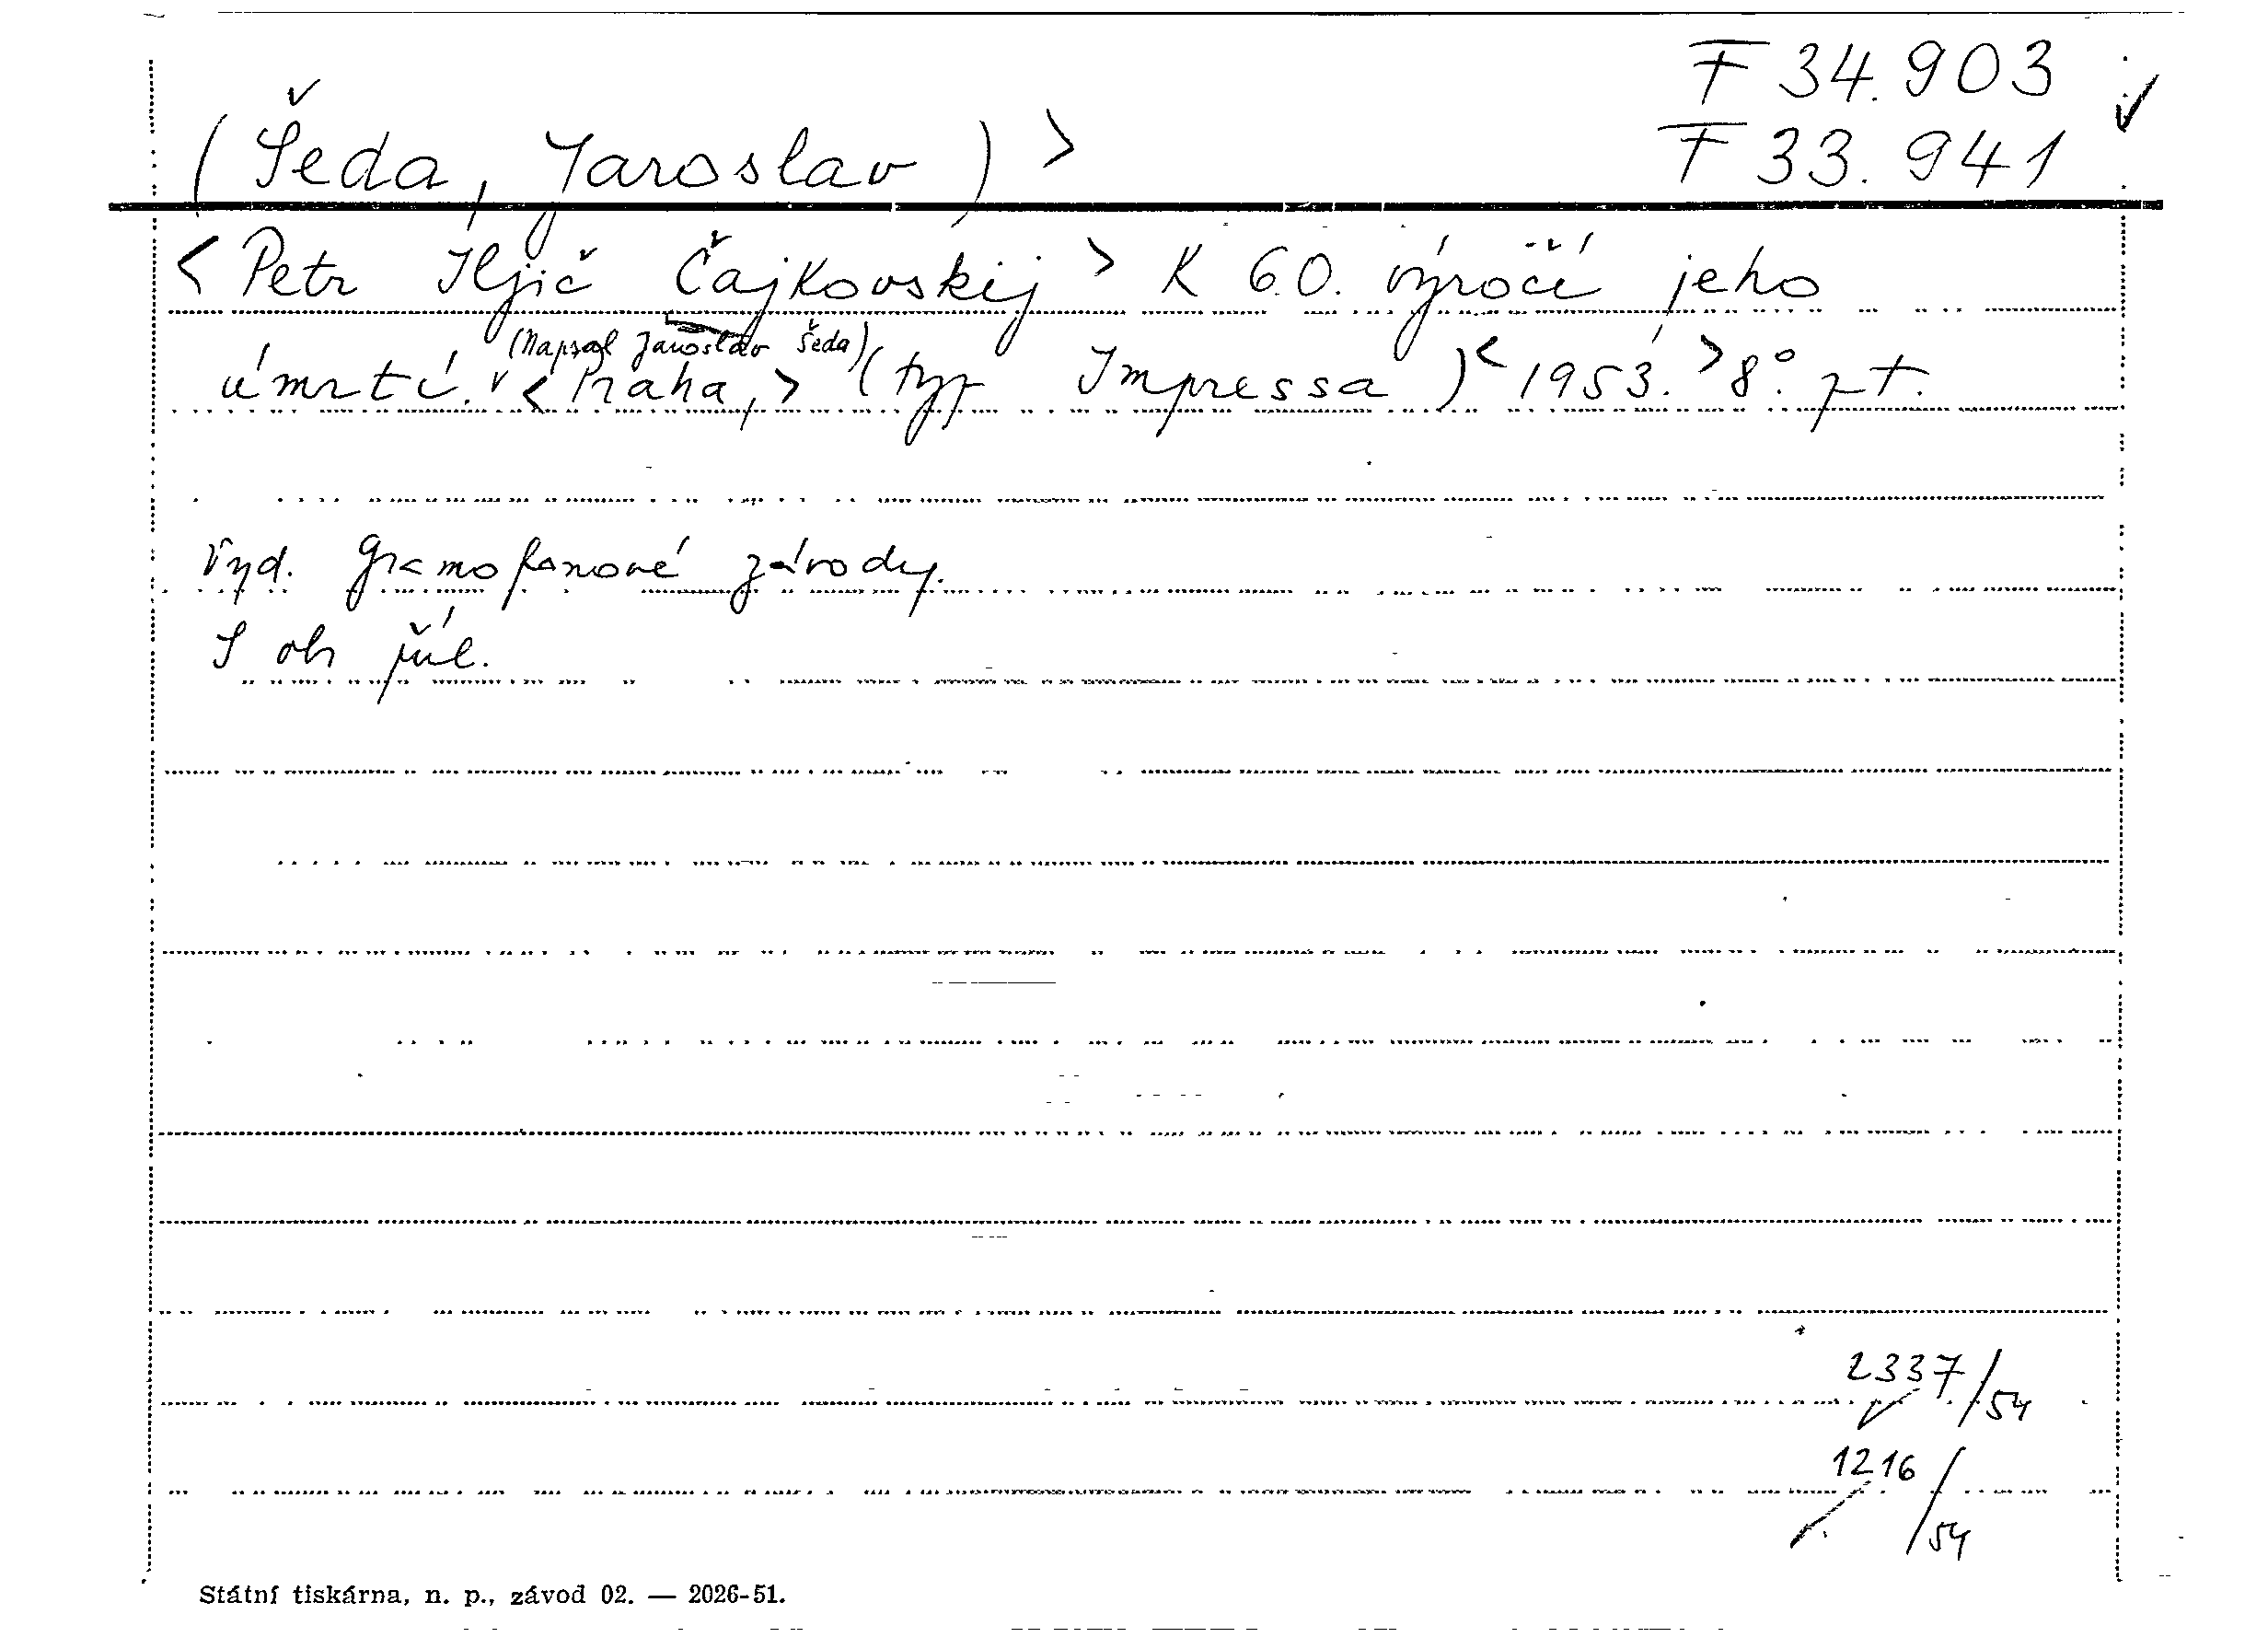 F 34.903
(Šeda, Jaroslav) > F 33.941
< Petr Iljič Čajkovskij > K 60. výročí jeho
(Napsal Jaroslav Šeda)
úmrtí. v < Praha, > (typ Impressa) < 1953. > 8°. pt.
Vyd. Gramofonové závody.
S obr příl.
2337/54
1216/54
Státní tiskárna, n. p., závod 02. — 2026-51.